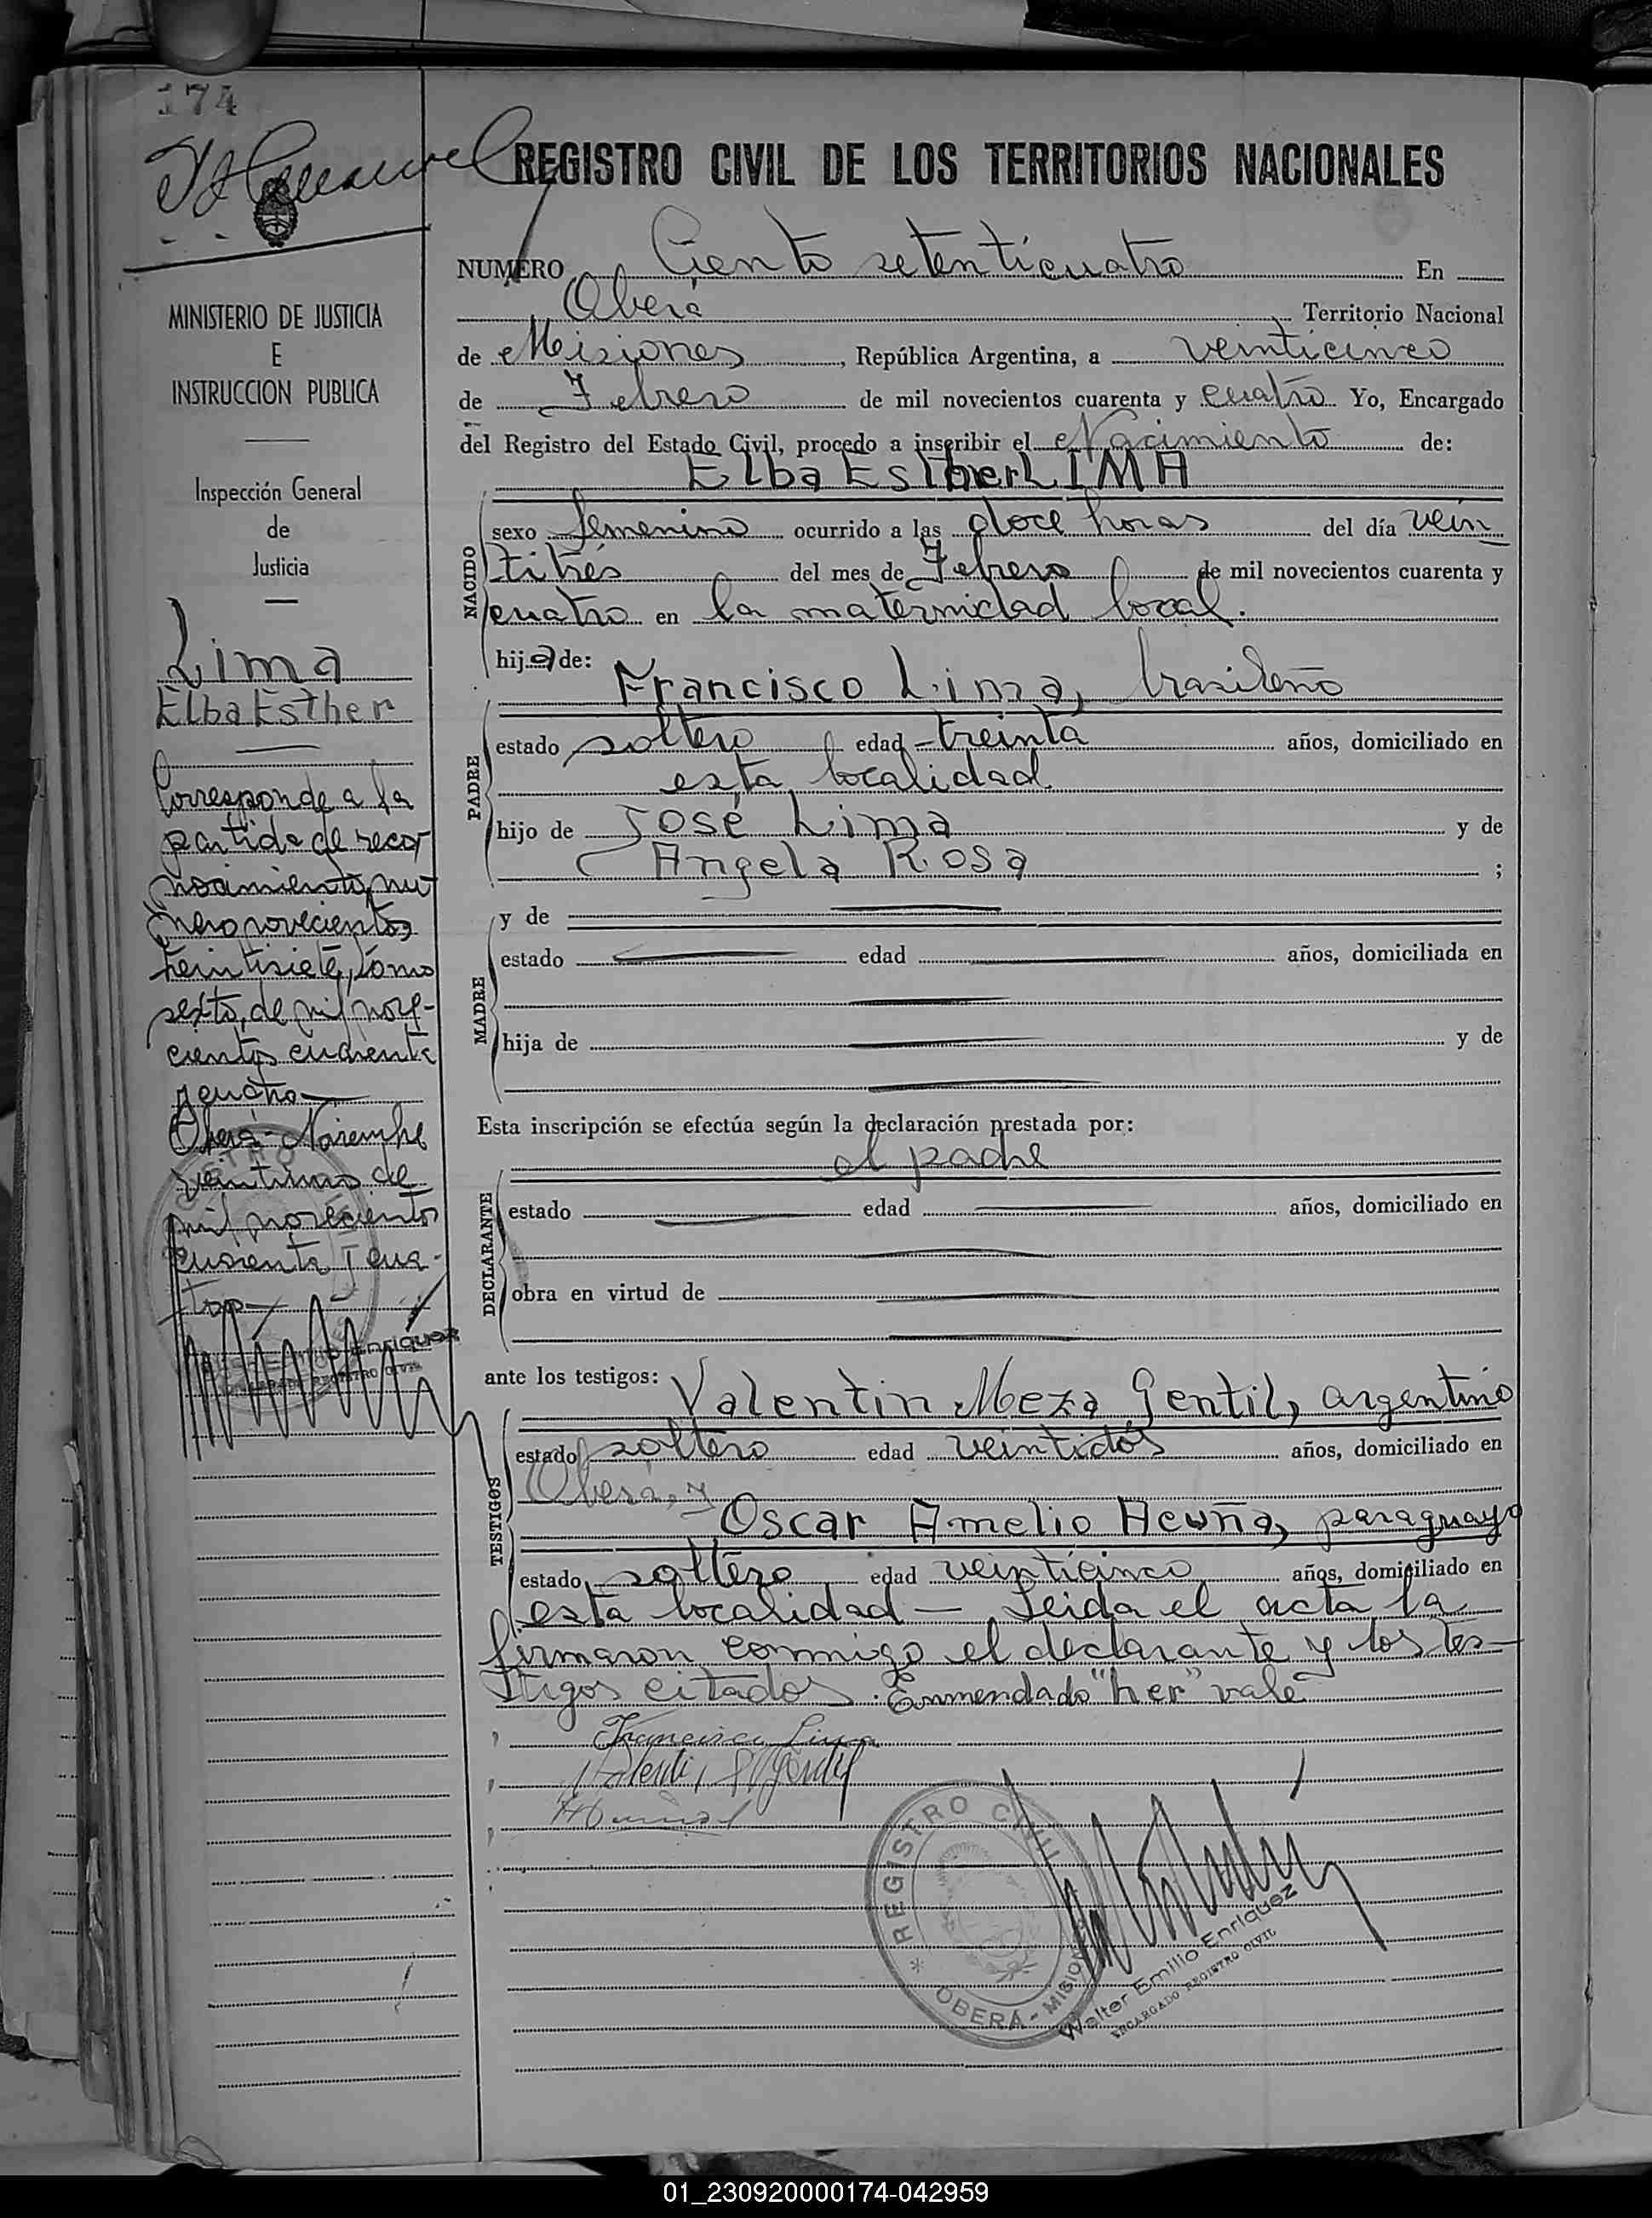 174
REGISTRO CIVIL DE LOS TERRITORIOS NACIONALES
NUMERO Ciento setenticuatro En
Oberá Territorio Nacional
de Misiones, República Argentina, a veinticinco
de Febrero de mil novecientos cuarenta y cuatro Yo, Encargado
del Registro del Estado Civil, procedo a inscribir el Nacimiento de:
Elba Esther LIMA
NACIDO
sexo femenino ocurrido a las doce horas del día vein
titrés del mes de Febrero de mil novecientos cuarenta y
cuatro en la maternidad local.
hija de:
Francisco Lima, brasileño
PADRE
estado soltero edad treinta años, domiciliado en
esta localidad
hijo de José Lima y de
Angela Rosa ;
MADRE
y de
estado edad años, domiciliada en
hija de y de
Esta inscripción se efectúa según la declaración prestada por:
el padre
DECLARANTE
estado edad años, domiciliado en
obra en virtud de
ante los testigos: Valentin Meza Gentil, argentino
TESTIGOS
estado soltero edad veintidós años, domiciliado en
Oberá, y
Oscar Amelio Acuña, paraguayo
estado soltero edad veinticinco años, domiciliado en
esta localidad — Leida el acta la
firmaron conmigo el declarante y los tes-
tigos citados. Enmendado "her" vale
Francisco Lima
REGISTRO CIVIL
* OBERÁ - MISIONES
Walter Emilio Enriquez
ENCARGADO REGISTRO CIVIL
MINISTERIO DE JUSTICIA
E
INSTRUCCION PUBLICA
Inspección General
de
Justicia
Lima
Elba Esther
Corresponde a la
partida de reco-
nocimiento nú-
mero novecientos
veintisiete, tomo
sexto, de mil nove-
cientos cuarenta
y cuatro
Oberá - Noviembre
veintiuno de
mil novecientos
cuarenta y cua-
tro
Enriquez
REGISTRO CIVIL
01_230920000174-042959